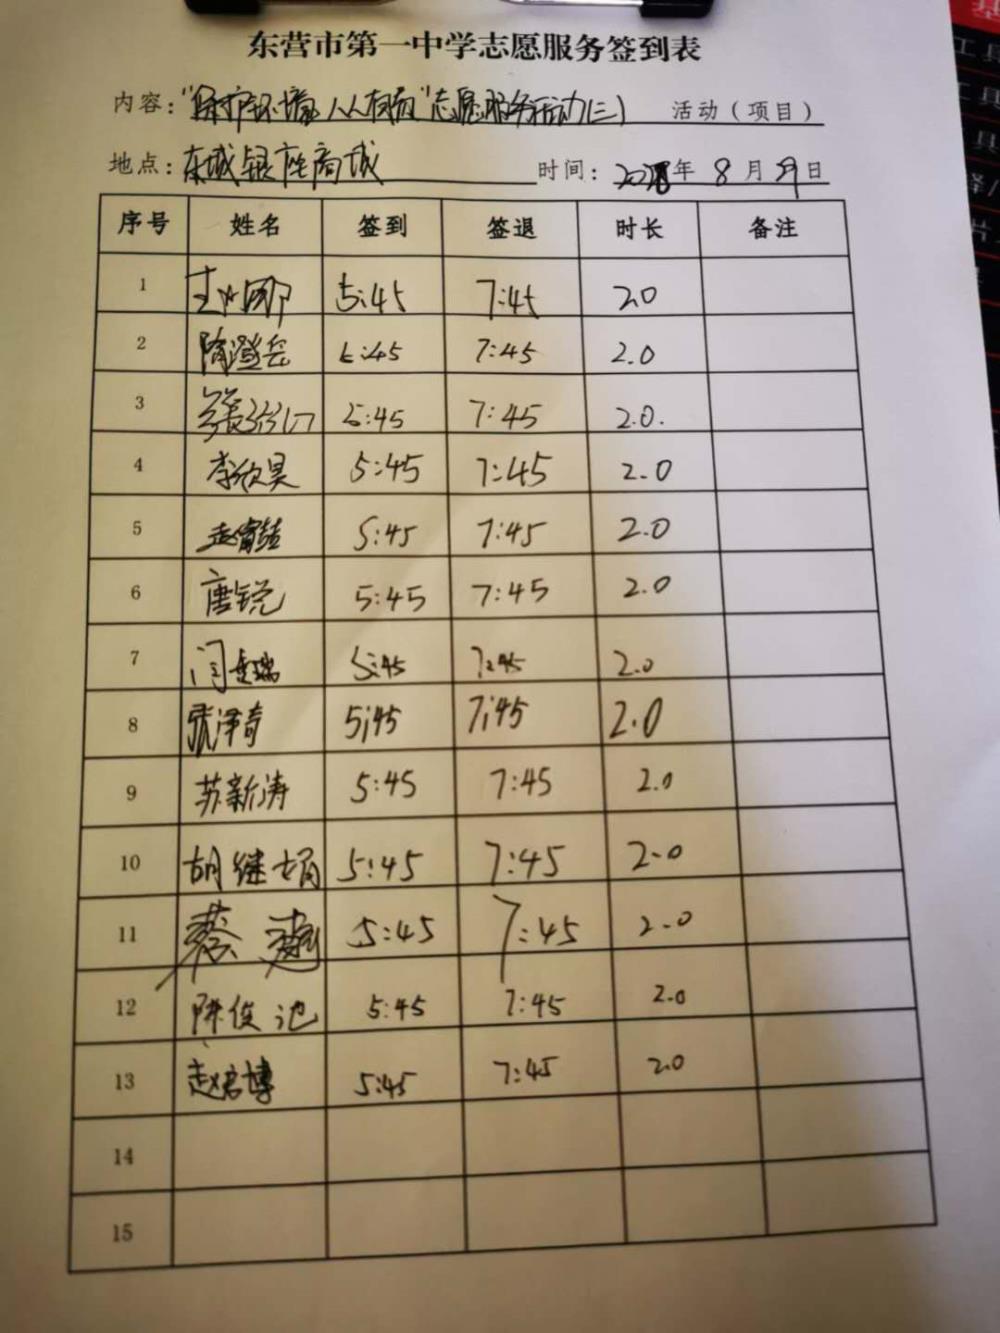 东营市第一中学志愿服务签到表
内容："保护环境 人人有责"志愿服务活动(三) 活动（项目）
地点：东城银座商城 时间： 年 8 月 日
序号 姓名 签到 签退 时长 备注
1 5:45 7:45 2.0
2 陶澄岳 5:45 7:45 2.0
3 5:45 7:45 2.0.
4 李欣昊 5:45 7:45 2.0
5 5:45 7:45 2.0
6 唐锐 5:45 7:45 2.0
7 5:45 7:45 2.0
8 张泽奇 5:45 7:45 2.0
9 苏新涛 5:45 7:45 2.0
10 胡继娟 5:45 7:45 2.0
11 5:45 7:45 2.0
12 陈俊池 5:45 7:45 2.0
13 赵启博 5:45 7:45 2.0
14
15
工具
工具
具